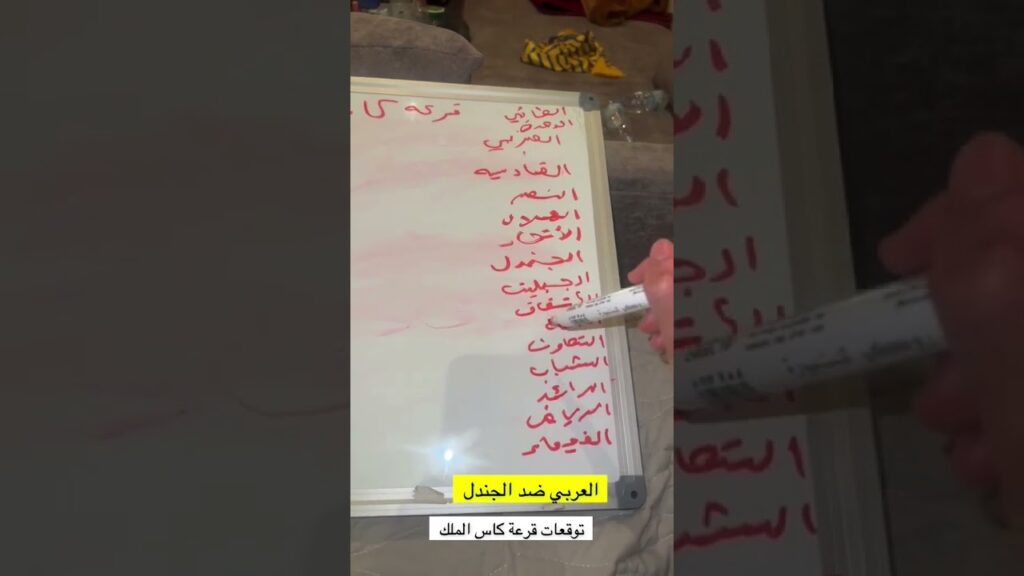 قرعة كا
الطائي
الوحدة
العربي
القادسيه
النصر
الهلال
الأتحاد
الجندل
الجبلين
الأتفاق
التعاون
الشباب
الرائد
الرياض
الفيحاء
العربي ضد الجندل
توقعات قرعة كاس الملك